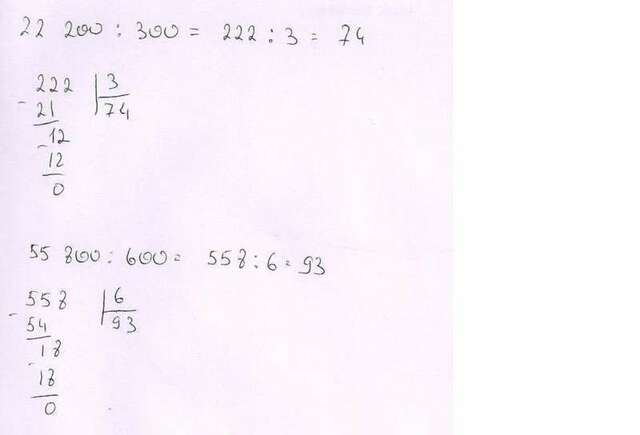 22 200 : 300 = 222 : 3 = 74
222 3
- 21 74
12
- 12
0
55 800 : 600 = 558 : 6 = 93
558 6
- 54 93
18
- 18
0